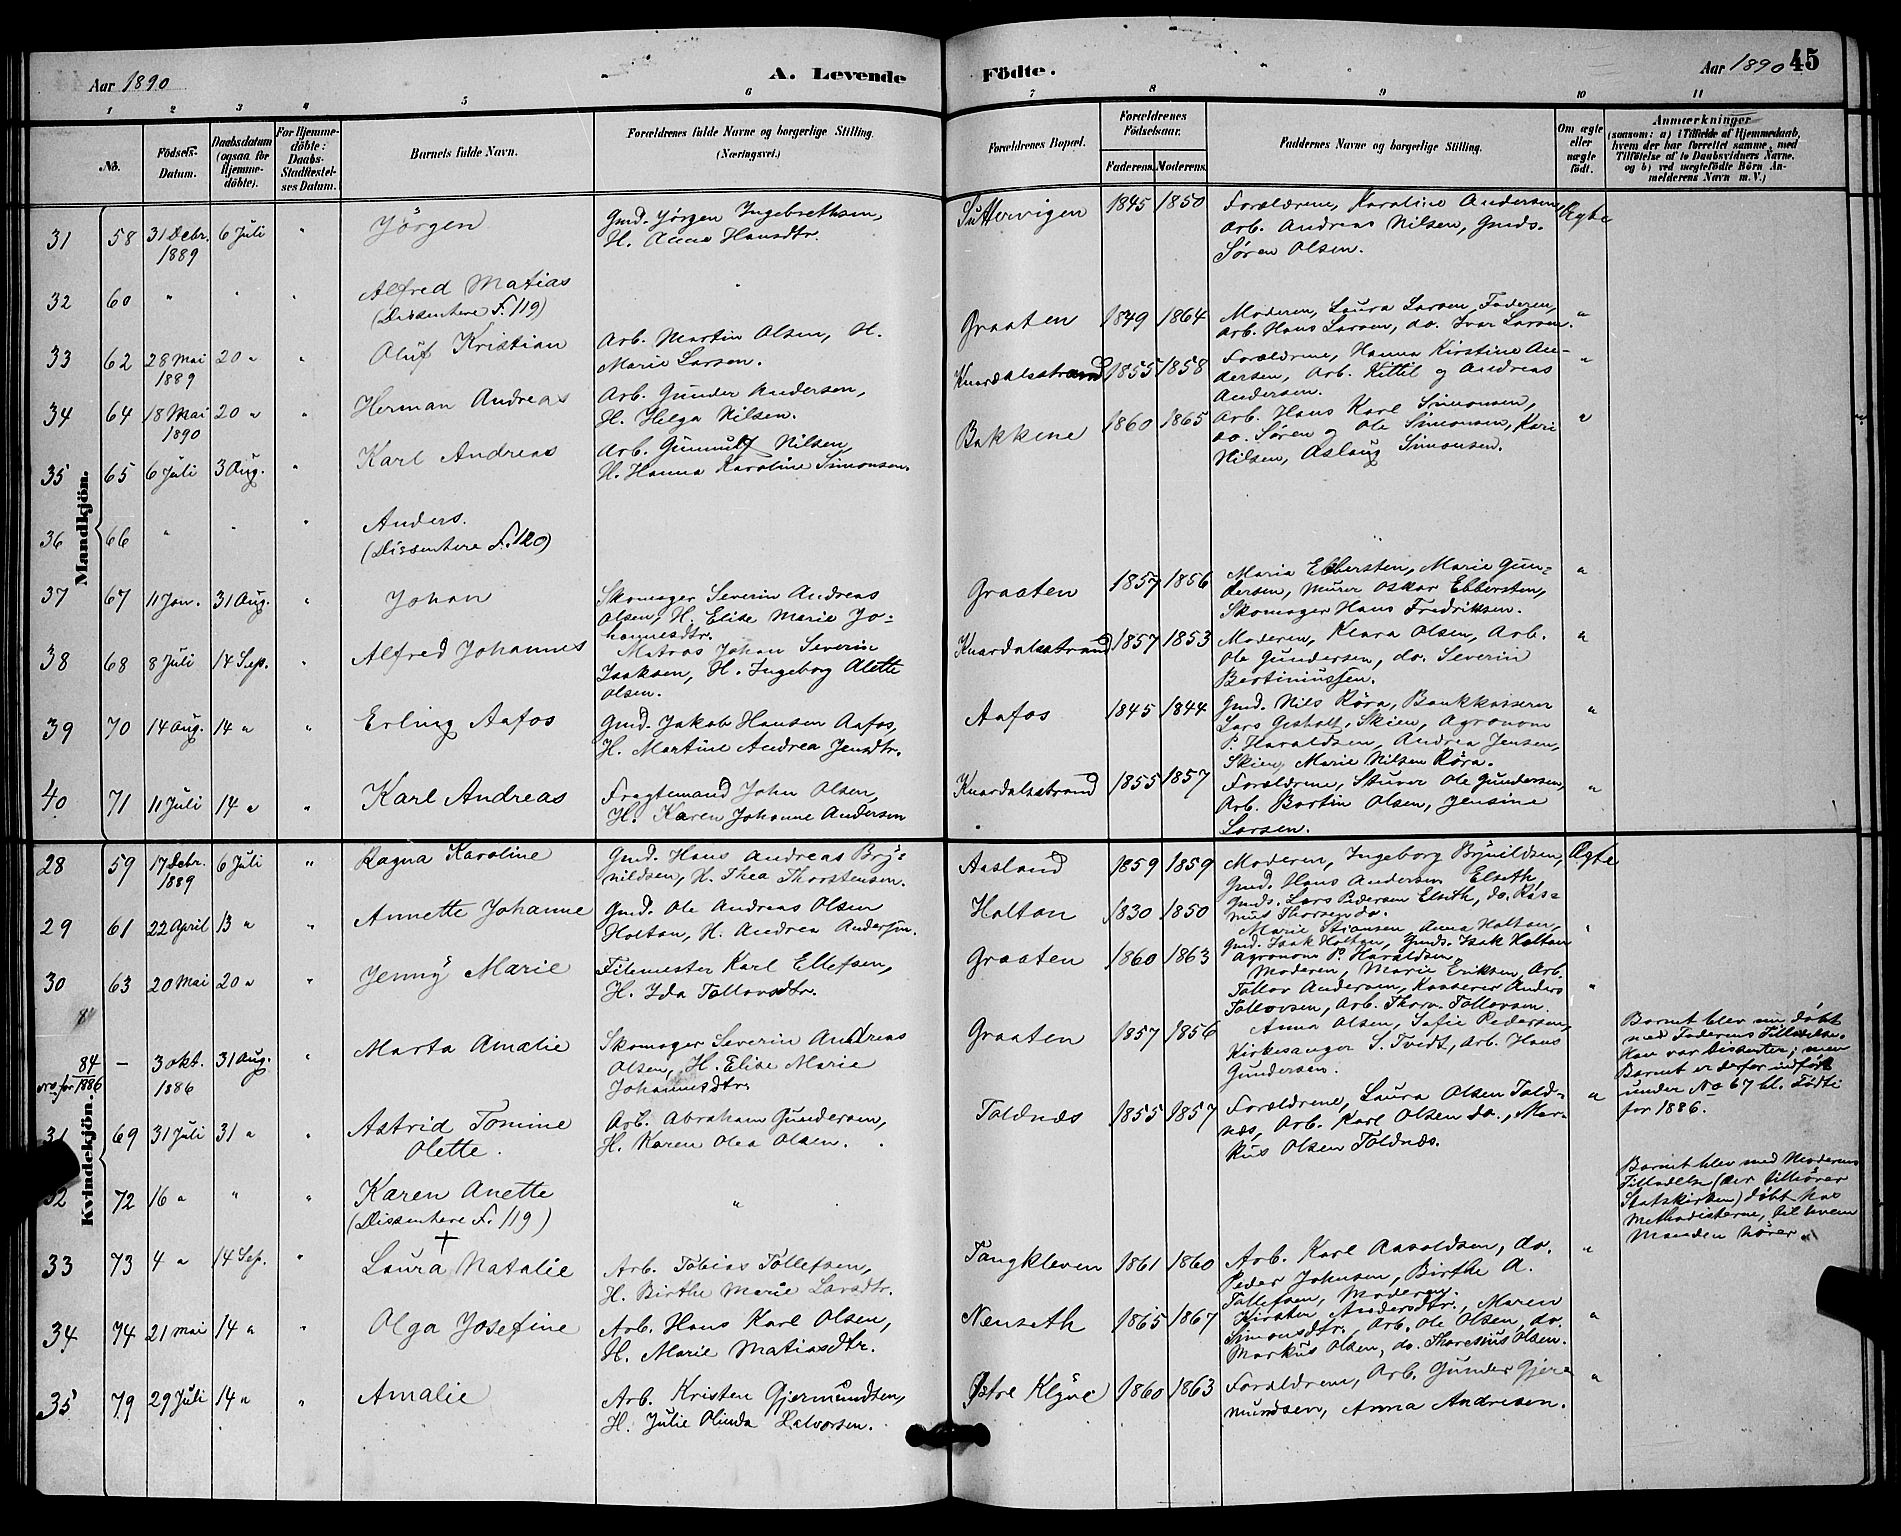 Aar 1890
A. Levende
Födte.
Aar 1890
45
1 2 3 4 5 6 7 8 9 10 11
No.
Födsels-
Datum.
Daabsdatum
(ogsaa for
Hjemme-
döbte).
For Hjemme-
döbte:
Daabs-
Stadfæstel-
ses Datum.
Barnets fulde Navn.
Forældrenes fulde Navne og borgerlige Stilling.
(Næringsvei.)
Forældrenes Bopæl.
Forældrenes
Födselsaar.
Faderens. Moderens.
Faddernes Navne og borgerlige Stilling.
Om ægte
eller
uægte
födt.
Anmærkninger
(saasom: a) i Tilfælde af Hjemmedaab,
hvem der har forrettet samme, med
Tilföielse af to Daabsvidners Navne,
og b) ved uægtefödte Börn An-
melderens Navn m. V.)
Mandkjön.
31 58 31 Debr. 6 Juli " Jörgen
1889
Gmd. Jörgen Ingebrethsen,
H. Anne Hansdtr.
Suttervigen 1845 1850
Forældrene, Karoline Andersen, Ægte
Arb. Andreas Nilsen, Gmds.
Søren Olsen.
32 60 " " " Alfred Matias "
(Dissentere F. 119)
33 62 28 Mai 20 " " Oluf Kristian
1889
Arb. Martin Olsen, H.
Marie Larsen.
Graaten 1849 1864
Moderen, Laura Larsen, Faderen, "
Arb. Hans Larsen, do. Ivar Larsen.
34 64 18 Mai 20 " " Herman Andreas
1890
Arb. Gunder Andersen,
H. Helga Nilsen.
Knardalsstrand 1855 1858
Forældrene, Hanna Kirstine An- "
dersen, Arb. Kittil og Andreas
Andersen.
35 65 6 Juli 3 Aug. " Karl Andreas
Arb. Gunnulf Nilsen
H. Hanna Karoline Simonsen.
Bakkene 1860 1865
Arb. Hans Karl Simonsen, "
do. Søren og Ole Simonsen, Kari
Nilsen, Aslaug Simonsen.
36 66 " " " Anders.
(Dissentere F. 120)
37 67 11 Jan. 31 Aug. " Johan
Skomager Severin Andreas
Olsen, H. Elise Marie Jo-
hannesdtr.
Graaten 1857 1856
Maria Ebbersten, Marie Gun- "
dersen, Murer Oskar Ebbersten,
Skomager Hans Fredriksen.
38 68 8 Juli 14 Sep. " Alfred Johannes
Matros Johan Severin
Isaksen, H. Ingeborg Olette
Olsen.
Knardalsstrand 1857 1853
Moderen, Klara Olsen, Arb. "
Ole Gundersen, do. Severin
Bertiniussen.
39 70 14 Aug. 14 " " Erling Aafos
Gmd. Jakob Hansen Aafos,
H. Martine Andrea Jensdtr.
Aafos 1845 1844
Gmd. Nils Röra, Bankkasserer "
Lars Gisholt, Skien, Agronom
P. Haraldsen, Andrea Jensen,
Skien, Marie Nilsen Röra.
40 71 11 Juli 14 " " Karl Andreas
Fragtemand John Olsen,
H. Karen Johanne Andersen
Knardalsstrand 1855 1857
Forældrene, Stuver Ole Gundersen, "
Arb. Bertin Olsen, Jensine
Larsen.
Kvindekjön.
28 59 17 Debr. 6 Juli " Ragna Karoline
1889
Gmd. Hans Andreas Bry-
nildsen, H. Thea Thorstensen.
Aasland 1859 1859
Moderen, Ingeborg Brynildsen, Ægte
Gmd. Hans Andersen Elseth,
Gmds. Lars Pedersen Elseth, do. Ras-
mus Thorsen do.
29 61 22 April 13 " " Annette Johanne
Gmd. Ole Andreas Olsen
Holtan, H. Andrea Andersen.
Holtan 1830 1850
Marie Stiansen, Anna Holtan, "
Gmd. Isak Holtan, Gmds. Isak Holtan
Agronom P. Haraldsen.
30 63 20 Mai 20 " " Jenny Marie
Filemester Karl Ellefsen,
H. Ida Tollovsdtr.
Graaten 1860 1863
Moderen, Marie Eriksen, Arb. "
Tollov Andersen, Kasserer Anders
Tollovsen, Arb. Thorv. Tollovsen.
84
No. for 1886 — 3 Okt. 31 Aug. " Marta Amalie
1886
Skomager Severin Andreas
Olsen, H. Elise Marie
Johannesdtr.
Graaten 1857 1856
Anna Olsen, Sofie Pedersen,
Kirkesanger S. Tvidt, Arb. Hans
Gundersen.
Barnet blev nu døbt
med Faderens Tilladelse.
Han var dissenter; men
Barnet er derfor indført
under No 67 bl. Födte
for 1886.
31 69 31 Juli 31 " " Astrid Tomine
Olette.
Arb. Abraham Gundersen,
H. Karen Olea Olsen.
Toldnæs 1855 1857
Forældrene, Laura Olsen Told- "
næs, Arb. Karl Olsen do., Mar-
kus Olsen Toldnæs.
32 72 16 " " " Karen Anette "
(Dissentere F. 119)
Barnet blev med Moderens
Tilladelse (der tilhører
Statskirken) døbt hos
Methodisterne, til hvem
Manden hører.
33 73 4 " 14 Sep. " Laura Natalie
Arb. Tobias Tollefsen,
H. Birthe Marie Larsdtr.
Tangkleven 1861 1860
Arb. Karl Aasoldsen, do. "
Peder Johnsen, Birthe A.
Tollefsen, Moderen.
34 74 21 Mai 14 " " Olga Josefine
Arb. Hans Karl Olsen,
H. Marie Matiasdtr.
Nenseth 1865 1867
Kirsten Andersdtr., Maren "
Simonsdtr., Arb. Ole Olsen, do.
Markus Olsen, do. Thoresius Olsen.
35 79 29 Juli 14 " " Amalie
Arb. Kristen Gjermundsen,
H. Julie Olinda Halvorsen.
Østre Klyve 1860 1863
Forældrene, Arb. Gunder Gjer- "
mundsen, Anna Andresen.